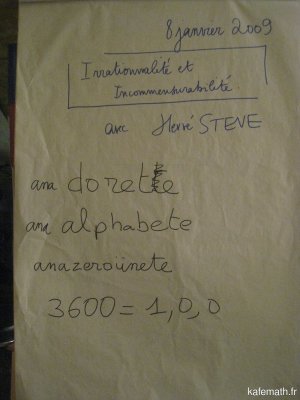 8 janvier 2009
Irrationnalité et
Incommensurabilité
avec Hervé STEVE
ana doretée
ana alphabete
anazeroünete
3600 = 1,0,0
kafemath.fr